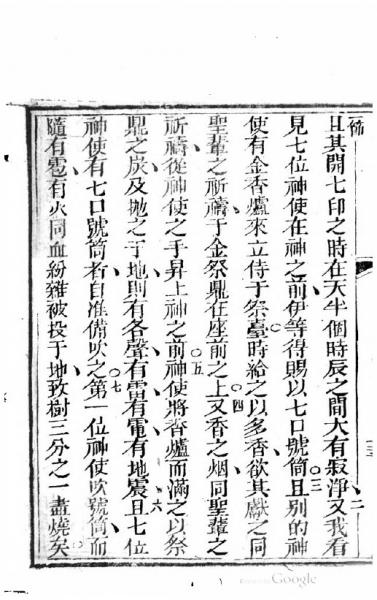 且其開七印之時在天半個時辰之間大有寂淨又我看
見七位神使在神之前伊等得賜以七口號筒且别的神
使有金香爐來立侍于祭臺時給之以多香欲其獻之同
聖輩之祈禱于金祭鼎在座前之上又香之烟同聖輩之
祈禱從神使之手昇上神之前神使將香爐而滿之以祭
鼎之炭及拋之于地則有各聲有雷有電有地震且七位
神使有七口號筒者自准備吹之第一位神使吹號筒而
隨有雹有火同血紛雜被投于地致樹三分之一盡燒矣
二
三
四
五
六
七
Google